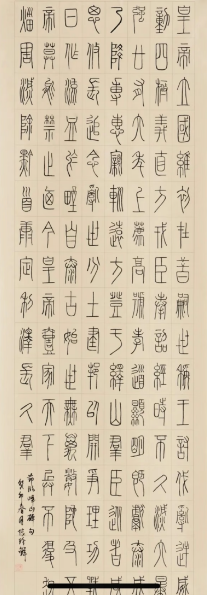 皇帝立國維初在昔嗣世稱王討伐亂逆威
動四極武義直方戎臣奉詔經時不久滅六暴
強廿有六年上薦高號孝道顯明既獻泰成
乃降專惠親巡遠方登于繹山群臣從者咸
思攸長追念亂世分土建邦以開爭理功戰
日作流血於野自泰古始世無萬數陀及五
帝莫能禁止迺今皇帝壹家天下兵不復起
災害滅除黔首康定利澤長久群
節臨嶧山碑句
癸卯春月